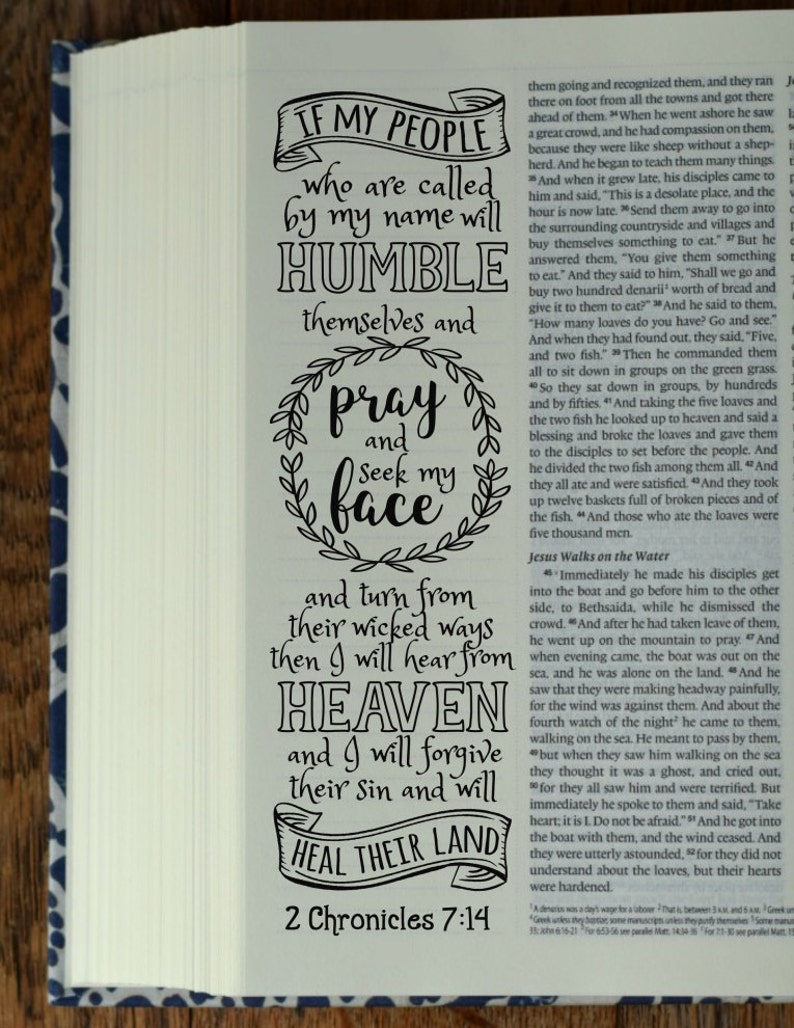 IF MY PEOPLE
who are called
by my name will
HUMBLE
themselves and
pray
and
seek my
face
and turn from
their wicked ways
then I will hear from
HEAVEN
and I will forgive
their sin and will
HEAL THEIR LAND
2 Chronicles 7:14
them going and recognized them, and they ran
there on foot from all the towns and got there
ahead of them. 34 When he went ashore he saw
a great crowd, and he had compassion on them,
because they were like sheep without a shep-
herd. And he began to teach them many things.
35 And when it grew late, his disciples came to
him and said, "This is a desolate place, and the
hour is now late. 36 Send them away to go into
the surrounding countryside and villages and
buy themselves something to eat." 37 But he
answered them, "You give them something
to eat." And they said to him, "Shall we go and
buy two hundred denarii¹ worth of bread and
give it to them to eat?" 38 And he said to them,
"How many loaves do you have? Go and see."
And when they had found out, they said, "Five,
and two fish." 39 Then he commanded them
all to sit down in groups on the green grass.
40 So they sat down in groups, by hundreds
and by fifties. 41 And taking the five loaves and
the two fish he looked up to heaven and said a
blessing and broke the loaves and gave them
to the disciples to set before the people. And
he divided the two fish among them all. 42 And
they all ate and were satisfied. 43 And they took
up twelve baskets full of broken pieces and of
the fish. 44 And those who ate the loaves were
five thousand men.
Jesus Walks on the Water
45 Immediately he made his disciples get
into the boat and go before him to the other
side, to Bethsaida, while he dismissed the
crowd. 46 And after he had taken leave of them,
he went up on the mountain to pray. 47 And
when evening came, the boat was out on the
sea, and he was alone on the land. 48 And he
saw that they were making headway painfully,
for the wind was against them. And about the
fourth watch of the night² he came to them,
walking on the sea. He meant to pass by them,
49 but when they saw him walking on the sea
they thought it was a ghost, and cried out,
50 for they all saw him and were terrified. But
immediately he spoke to them and said, "Take
heart; it is I. Do not be afraid." 51 And he got into
the boat with them, and the wind ceased. And
they were utterly astounded, 52 for they did not
understand about the loaves, but their hearts
were hardened.
¹ A denarius was a day's wage for a laborer ² That is, between 3 A.M. and 6 A.M. ³ Greek
⁴ Greek unless they baptize; some manuscripts unless they purify themselves ⁵ Some
33; John 6:16-21 For 6:53-56 see parallel Matt. 14:34-36 For 7:1-30 see parallel Matt.